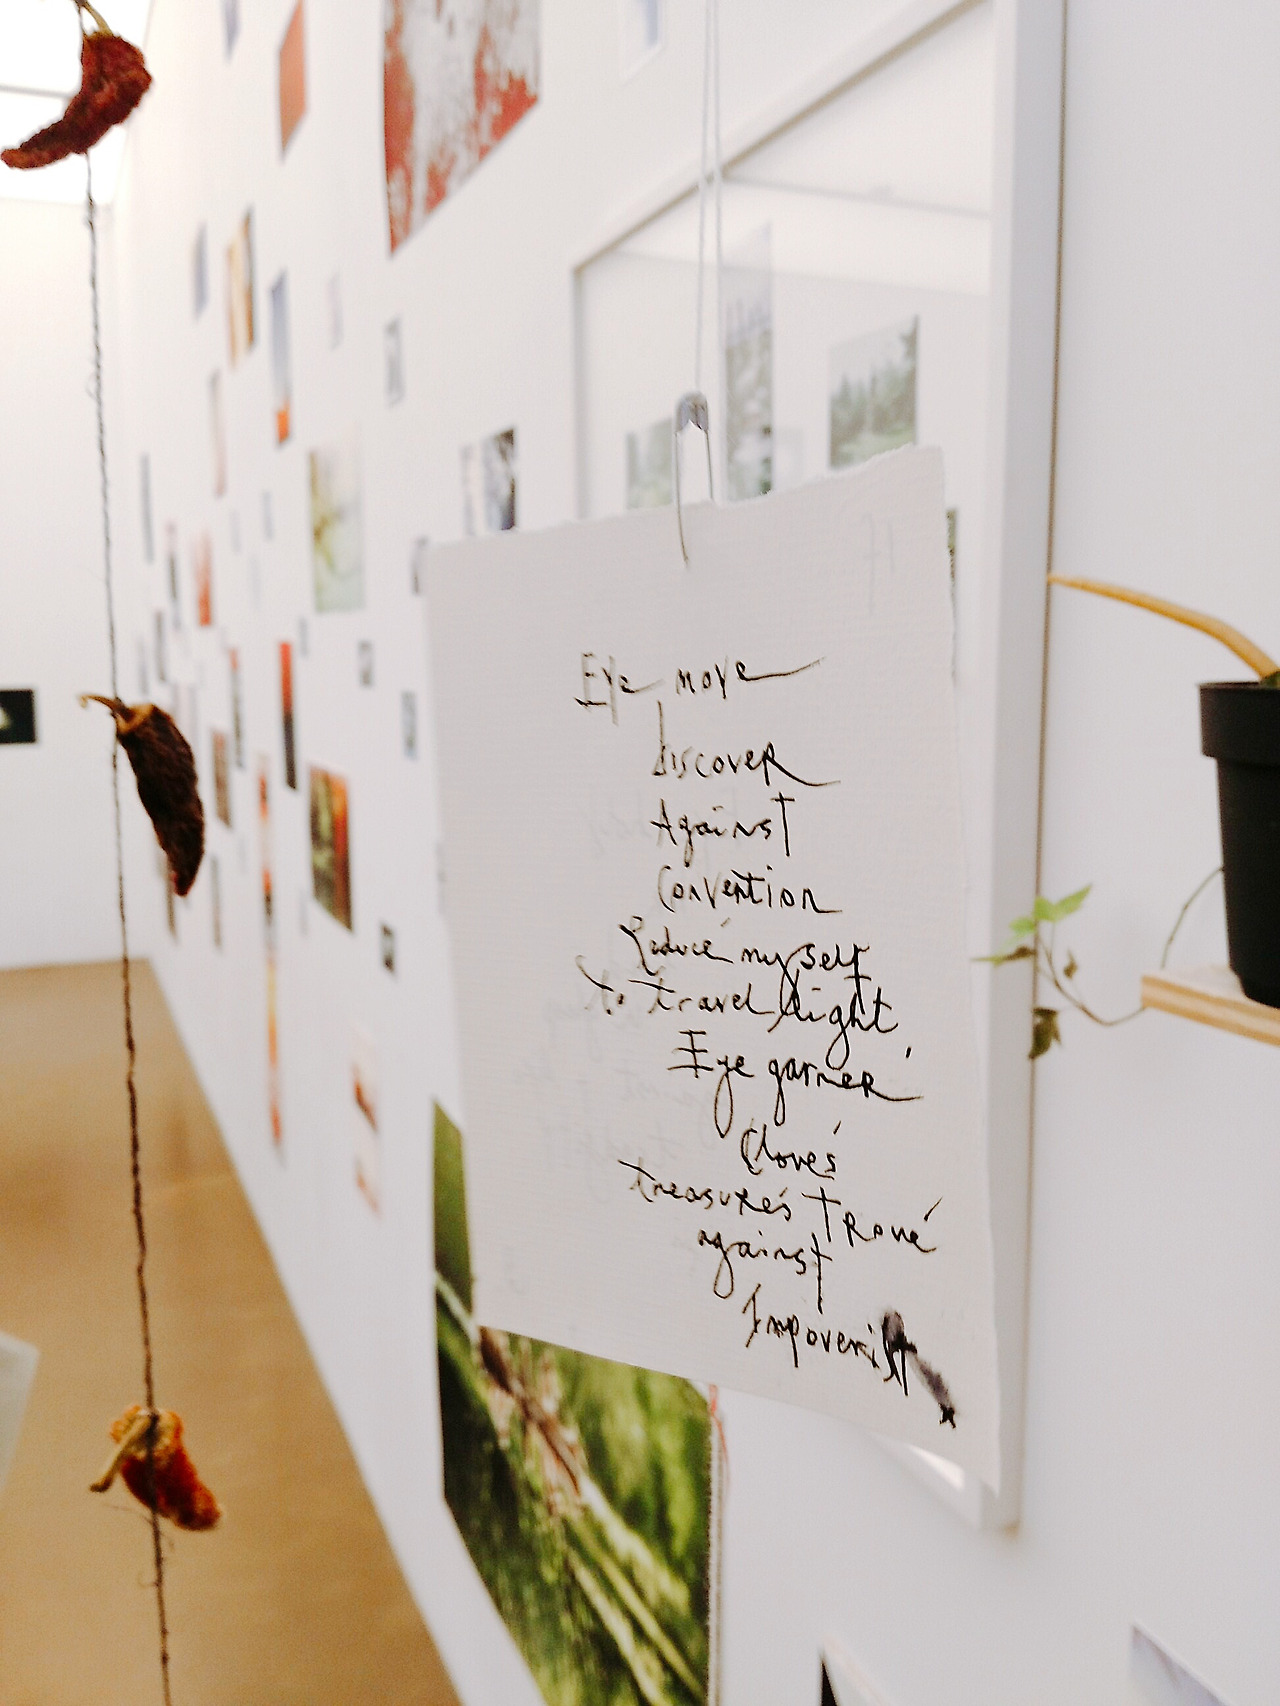 Eye move
discover
Against
Convention
Reducé my self
to travel light
Eye garner'
Clovés
treasurés Trové
against